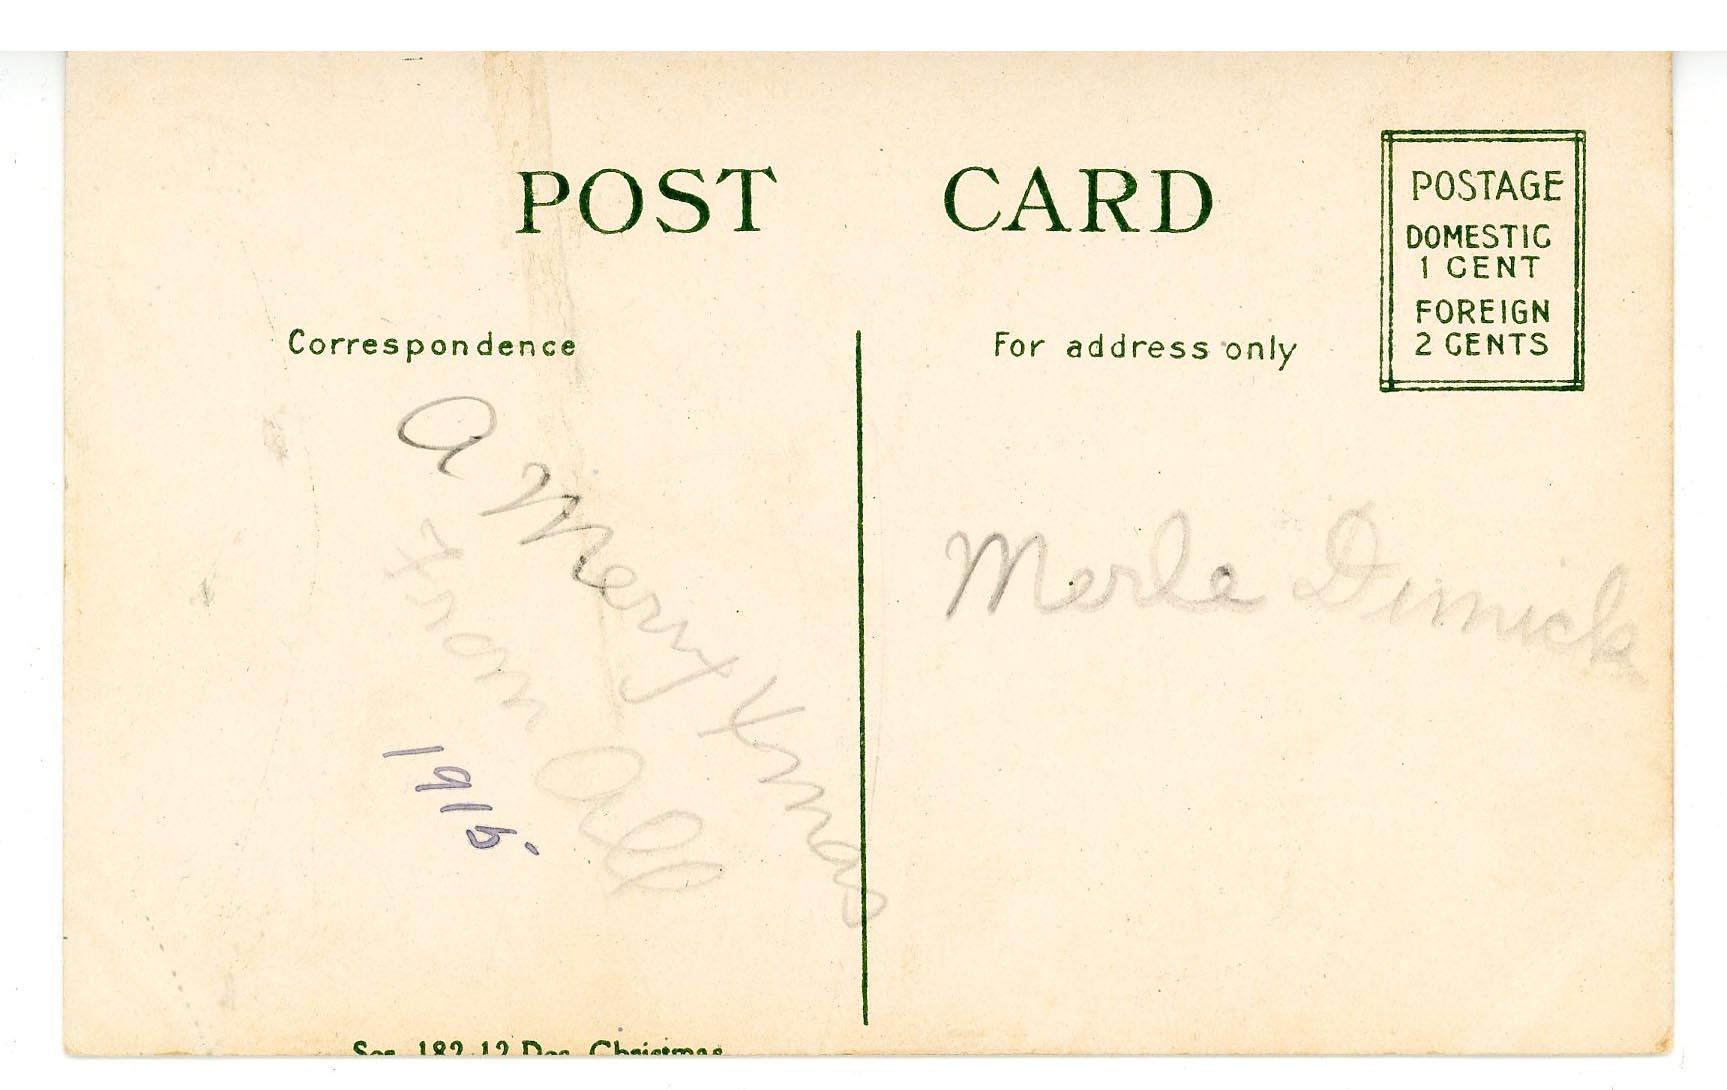 POST CARD
POSTAGE
DOMESTIC
1 CENT
FOREIGN
2 CENTS
Correspondence
For address only
A Merry Xmas
From All
1915.
Merle Dimick
Ser. 182 12 Des. Christmas